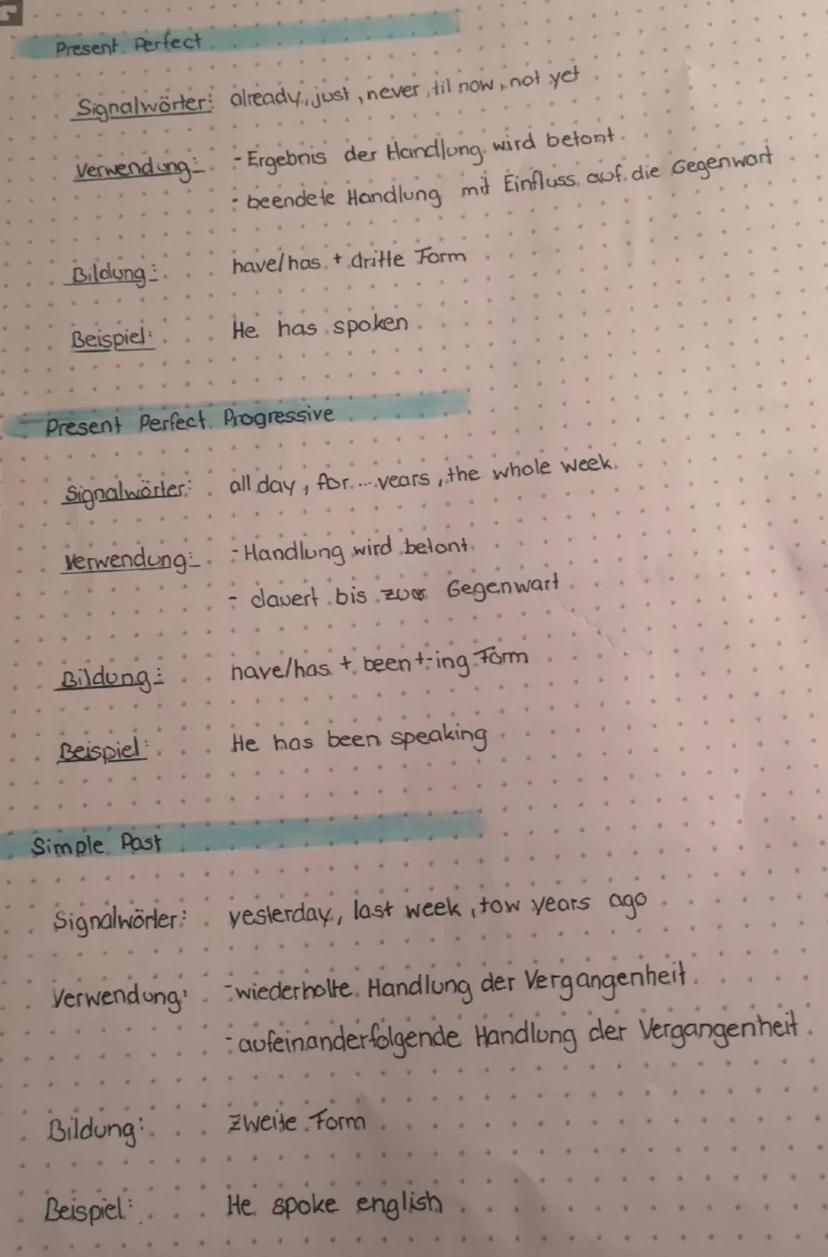 Present Perfect
Signalwörter: already, just, never, til now, not yet
Verwendung: - Ergebnis der Handlung wird betont
- beendete Handlung mit Einfluss auf die Gegenwart
Bildung: have/has + dritte Form
Beispiel: He has spoken
Present Perfect Progressive
Signalwörter: all day, for ... years, the whole week
Verwendung: - Handlung wird betont
- dauert bis zur Gegenwart
Bildung: have/has + been + -ing Form
Beispiel: He has been speaking
Simple Past
Signalwörter: yesterday, last week, tow years ago
Verwendung: - wiederholte Handlung der Vergangenheit
- aufeinanderfolgende Handlung der Vergangenheit
Bildung: zweite Form
Beispiel: He spoke english